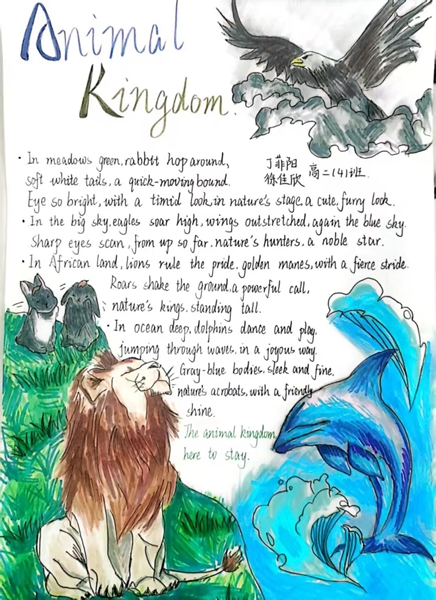 Animal
Kingdom.
· In meadows green, rabbit hop around,
soft white tails, a quick-moving bound.
Eye so bright, with a timid look, in nature's stage, a cute, furry look.
丁菲阳
徐佳欣
高二(4)班
· In the big sky, eagles soar high, wings outstretched, again the blue sky.
Sharp eyes scan, from up so far, nature's hunters, a noble star.
· In African land, lions rule the pride, golden manes, with a fierce stride.
Roars shake the ground, a powerful call,
nature's kings, standing tall.
· In ocean deep, dolphins dance and play,
jumping through waves, in a joyous way.
Gray-blue bodies, sleek and fine,
nature's acrobats, with a friendly
shine.
The animal kingdom
here to stay.